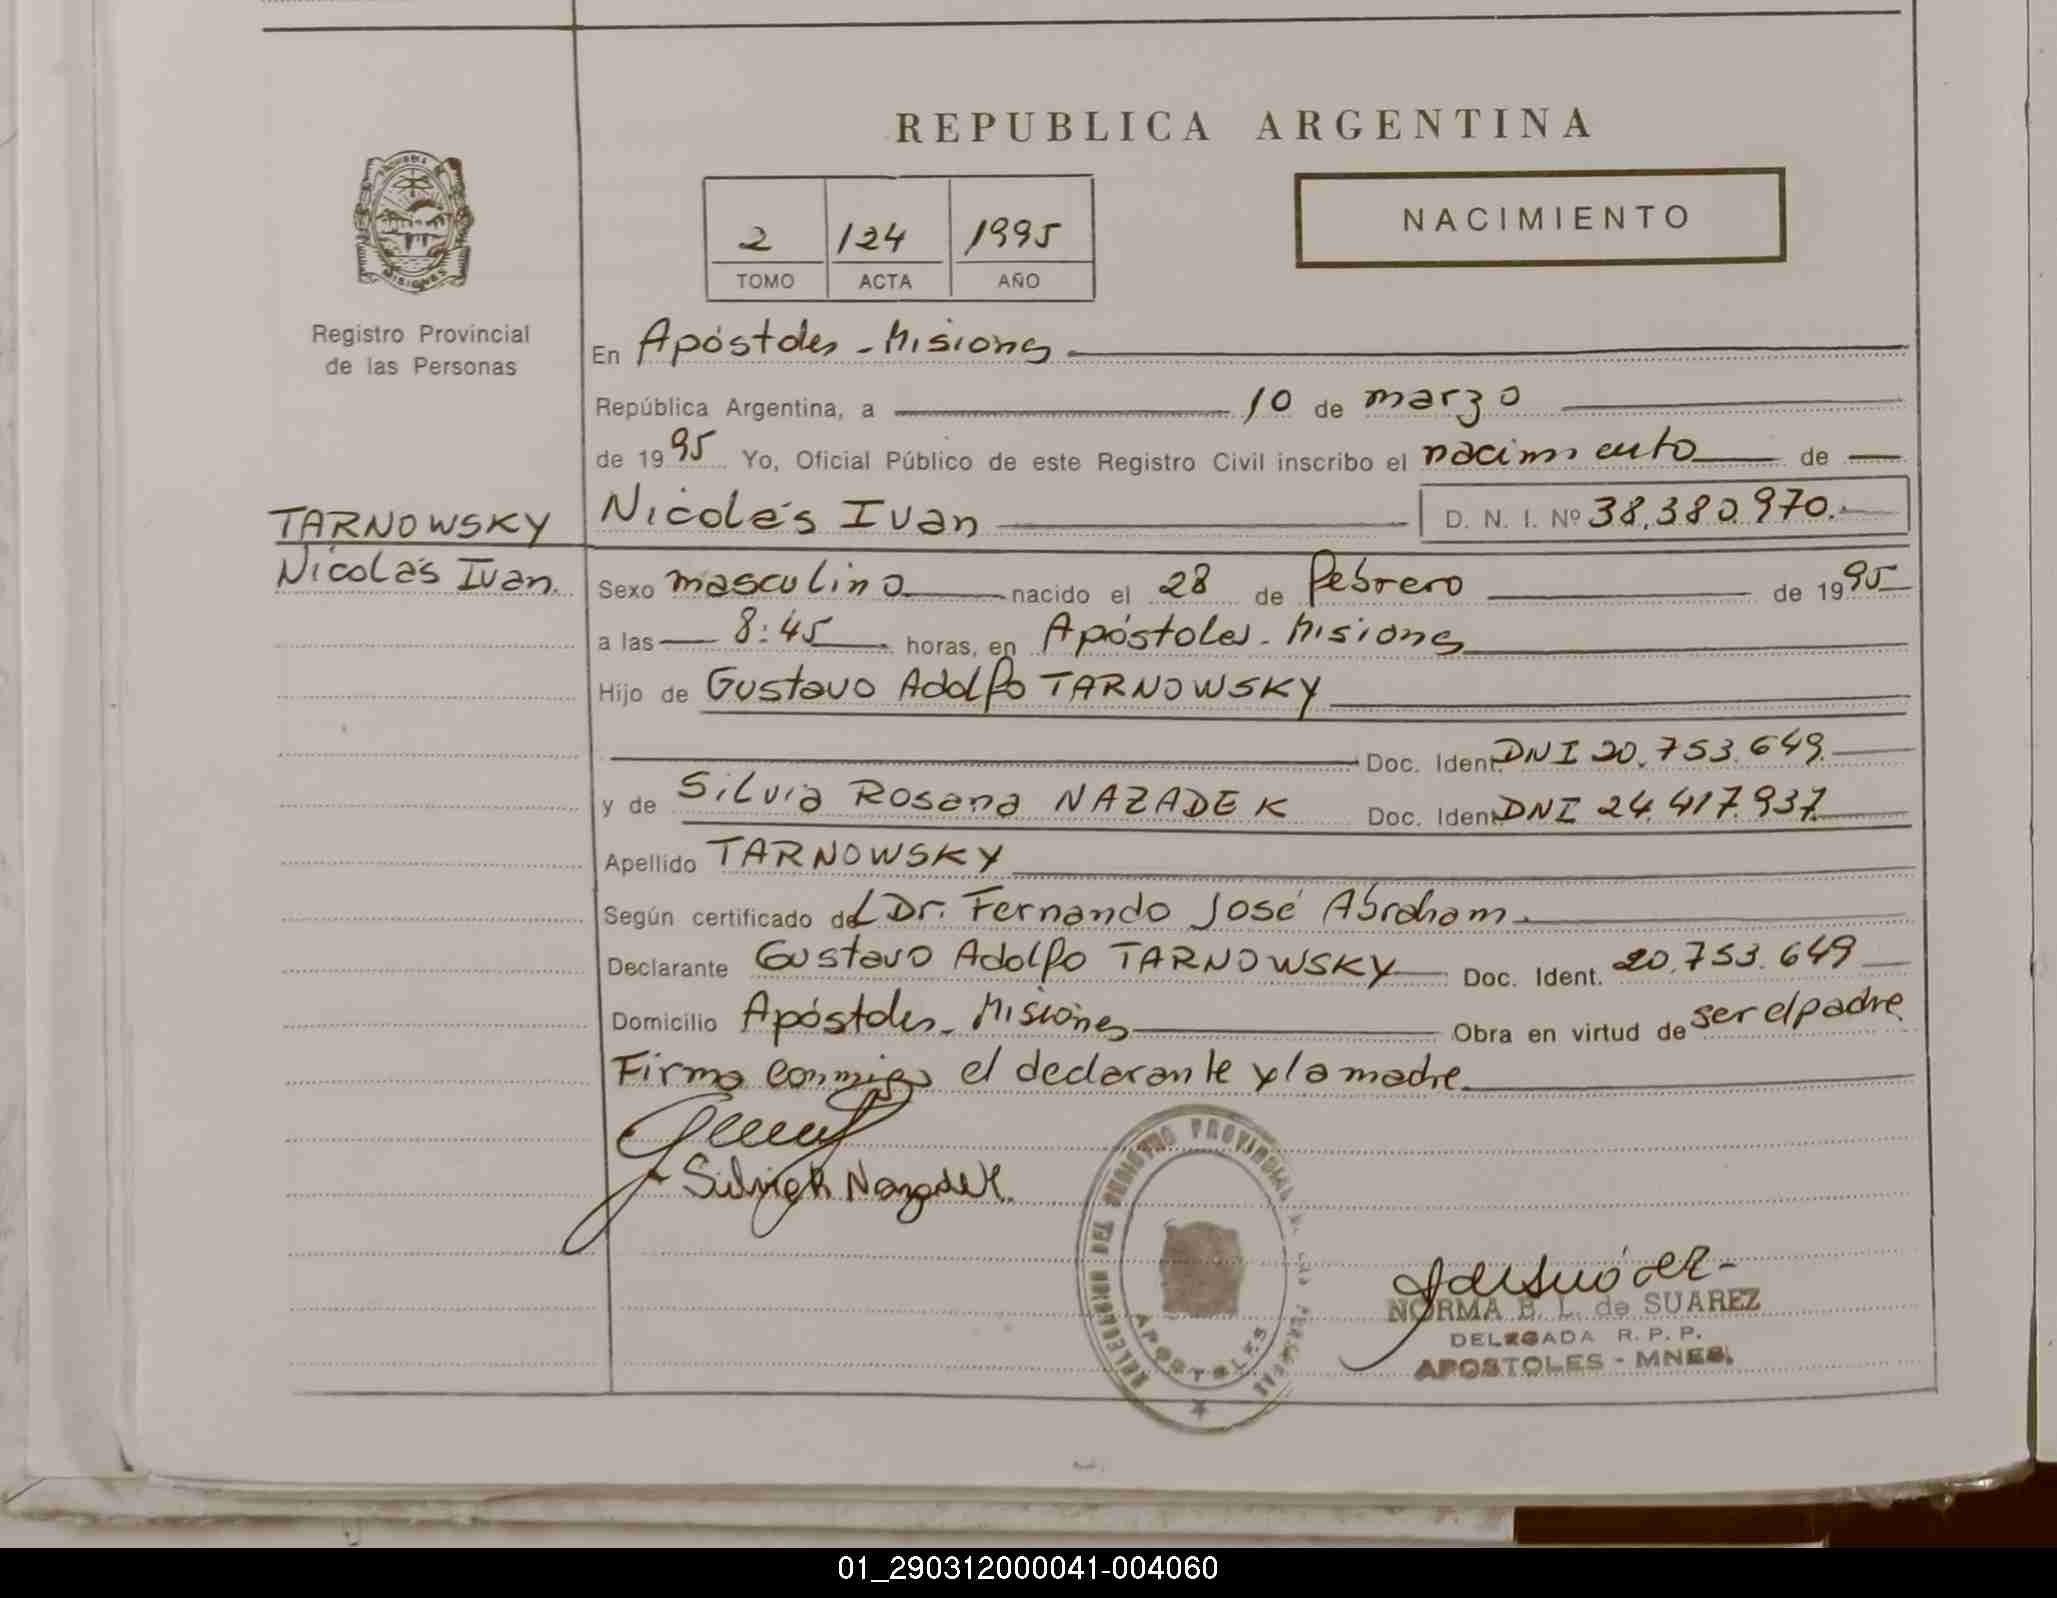 REPUBLICA ARGENTINA
NACIMIENTO
2 124 1995
TOMO ACTA AÑO
MISIONES
Registro Provincial
de las Personas
En Apóstoles - Misiones
República Argentina, a 10 de marzo
de 1995 Yo, Oficial Público de este Registro Civil inscribo el nacimiento de
TARNOWSKY
Nicolás Ivan.
Nicolás Ivan D. N. I. Nº 38.380.970.-
Sexo masculino nacido el 28 de febrero de 1995
a las 8:45 horas, en Apóstoles - Misiones
Hijo de Gustavo Adolfo TARNOWSKY
Doc. Ident. DNI 20.753.649.
y de Silvia Rosana NAZADEK Doc. Ident. DNI 24.417.937.
Apellido TARNOWSKY
Según certificado del Dr. Fernando José Abraham.
Declarante Gustavo Adolfo TARNOWSKY Doc. Ident. 20.753.649
Domicilio Apóstoles - Misiones Obra en virtud de ser el padre.
Firma conmigo el declarante y la madre
Silvia R Nazadek.
REGISTRO PROVINCIAL DE LAS PERSONAS
APOSTOLES
NORMA B. L. de SUAREZ
DELEGADA R. P. P.
APOSTOLES - MNES.
01_290312000041-004060